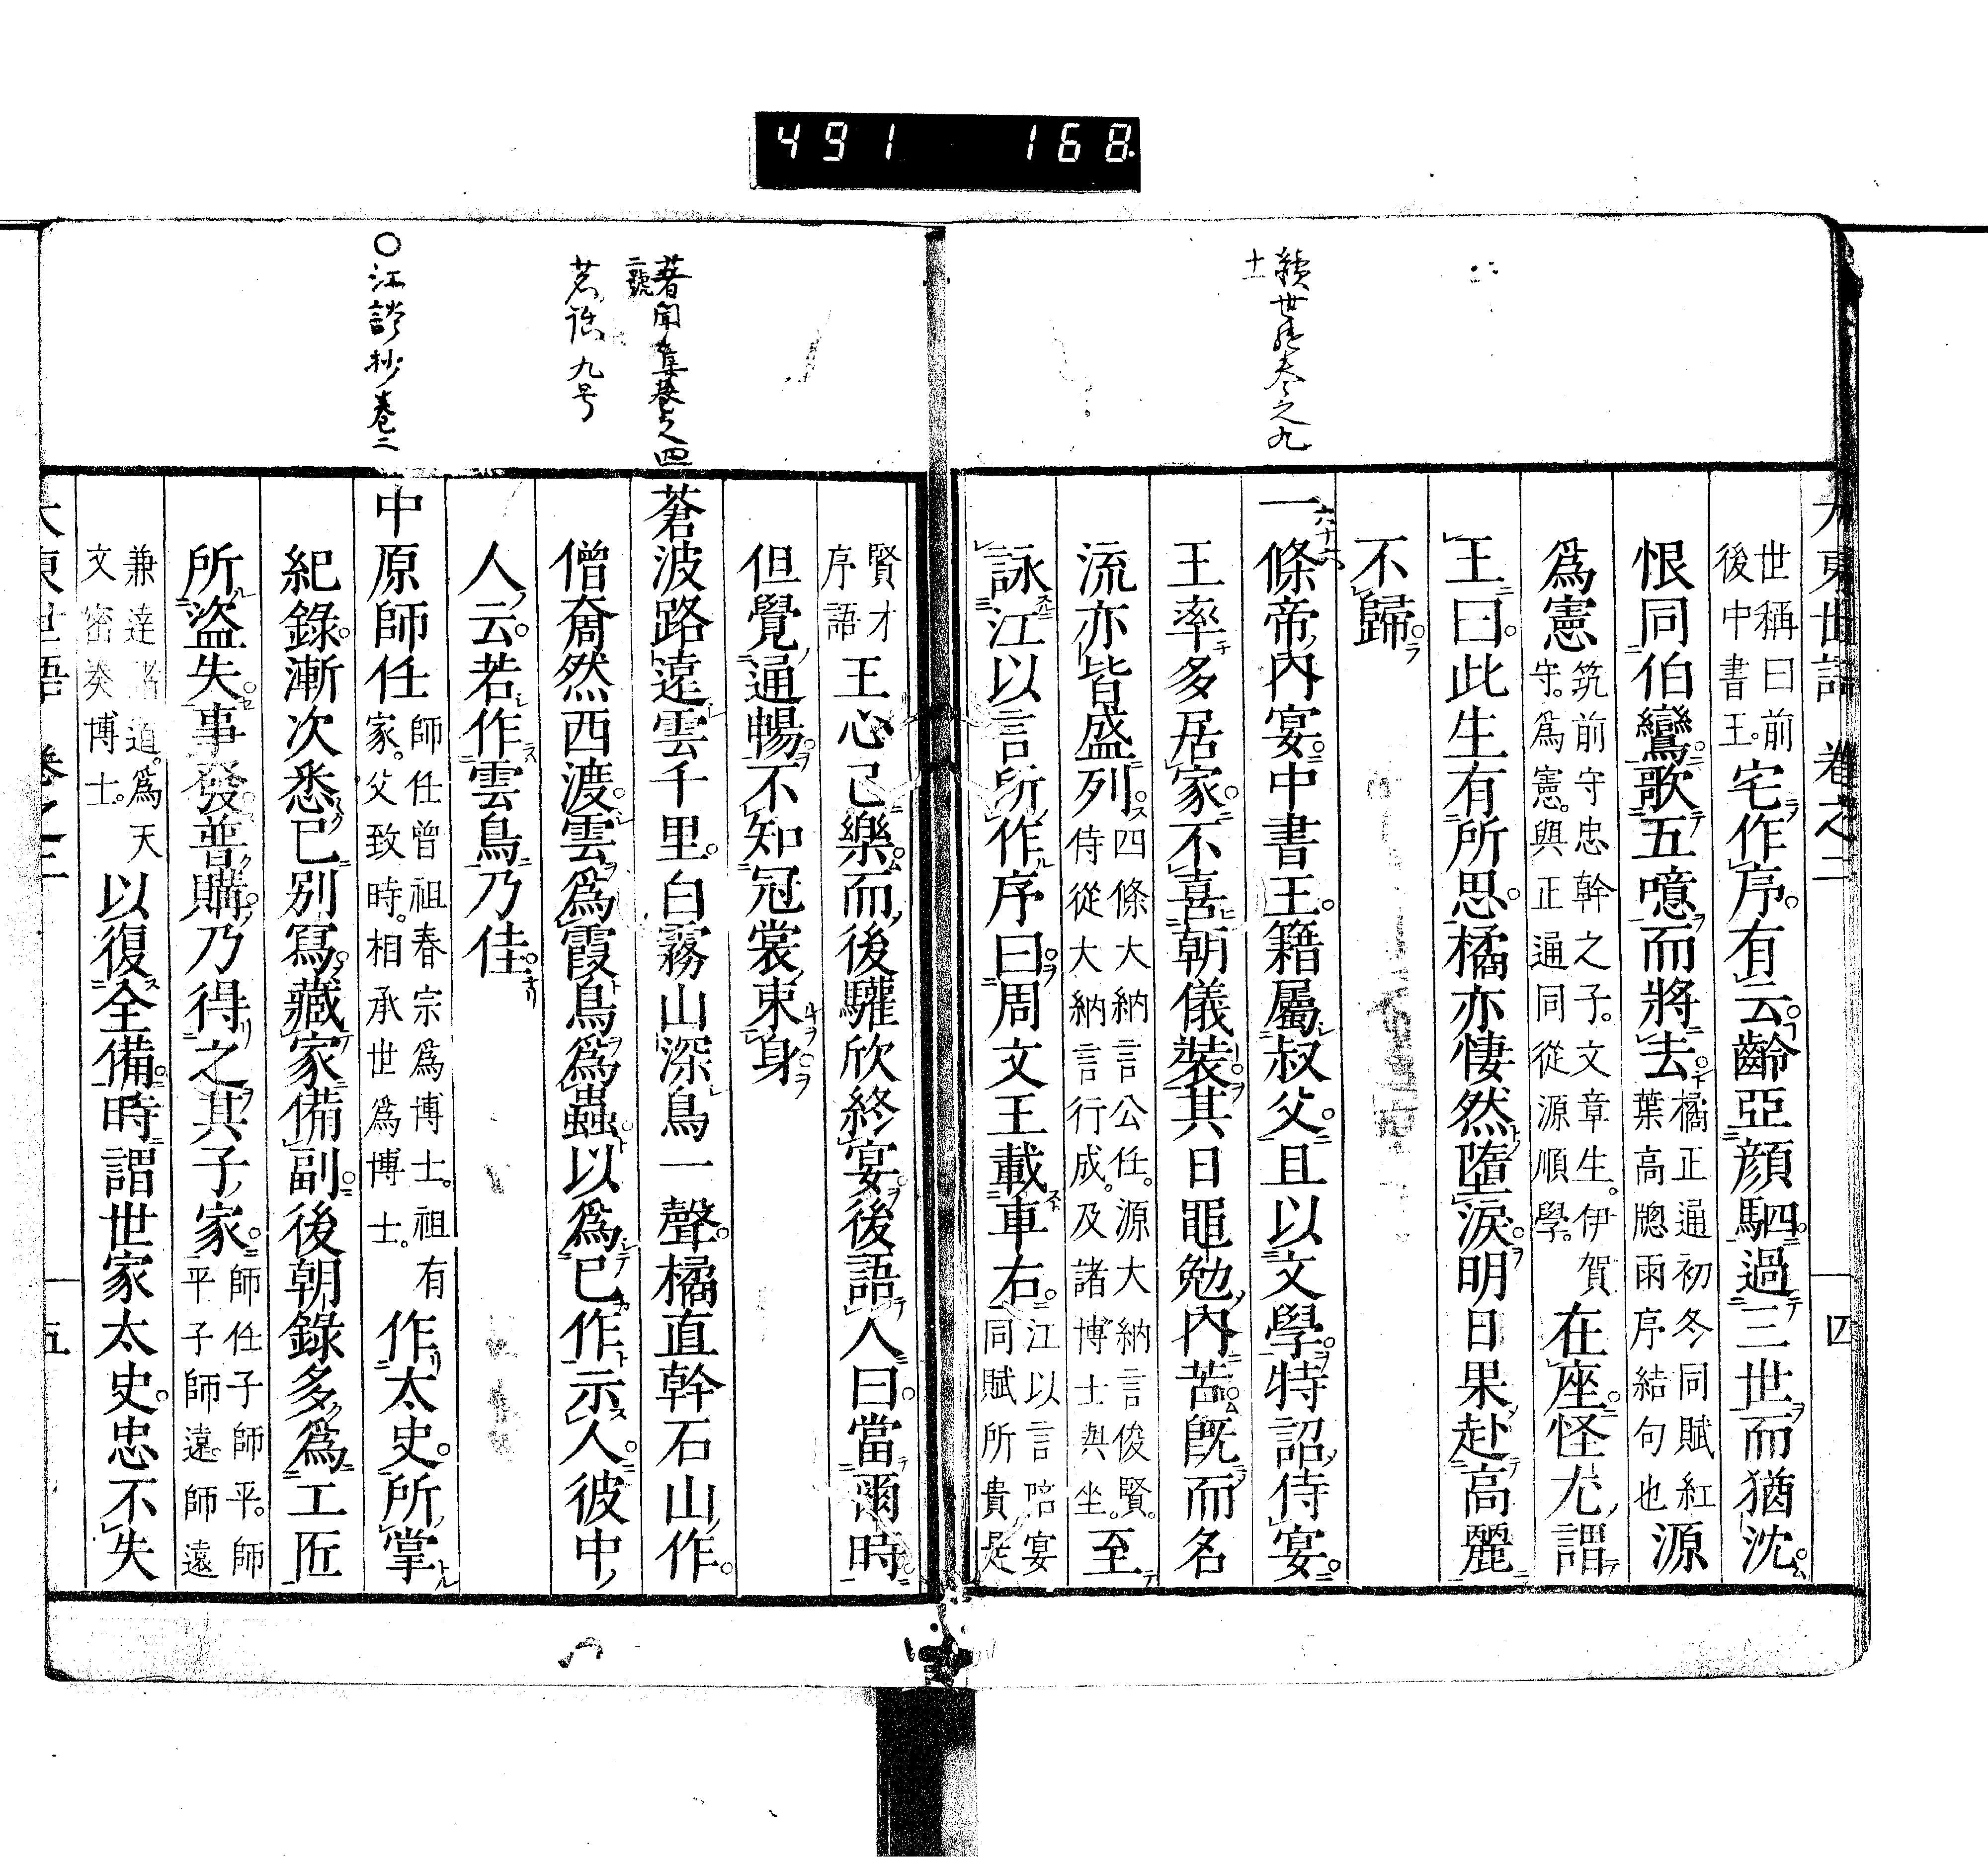 491 168
續世繼卷之九
十一
大東世語 卷之二 四
世稱曰前
後中書王。宅作序。有云。齡亞顏駟。過三世而猶沈。
恨同伯鸞。歌五噫而將去。橘正通初冬同賦紅
葉高牕雨序結句也源
爲憲筑前守忠幹之子。文章生。伊賀
守。爲憲。與正通同從源順學。在座。怪尤。謂
王曰。此生有所思。橘亦悽然墮淚。明日果赴高麗
不歸。
六十六
一條帝內宴。中書王。籍屬叔父。且以文學。特詔侍宴。
王率多居家。不喜朝儀裝。其日黽勉內苦。旣而名
流亦皆盛列。四條大納言公任。源大納言俊賢。
侍從大納言行成。及諸博士與坐。至
詠江以言所作序曰。周文王載車右。江以言陪宴
同賦所貴是
賢才
序語王心已樂。而後驩欣終宴。後語人曰。當爾時
但覺通暢。不知冠裳束身。
著聞集卷之四
二號
蒼波路遠雲千里。白霧山深鳥一聲。橘直幹石山作。
茗話九号
僧奝然西渡。雲爲霞鳥爲蟲。以爲已作示人。彼中
人云。若作雲鳥乃佳。
○江談抄卷二
中原師任師任曾祖春宗爲博士。祖有
家。父致時。相承世爲博士。作太史。所掌
紀錄。漸次悉已別寫。藏家備副。後朝錄多爲工匠
所盜失。事發普購。乃得之其子家。師任子師平。師
平子師遠。師遠
兼達諸道。爲天
文密奏博士。以復全備。時謂世家太史。忠不失
大東世語 卷之二 五